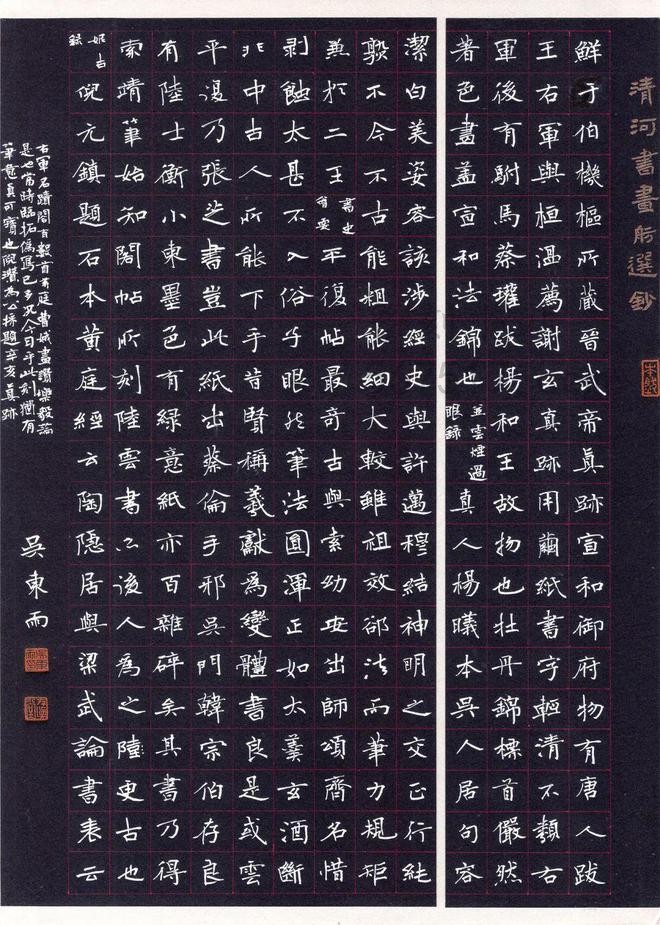 清河書畫舫選鈔
鮮于伯機樞所藏晉武帝真跡宣和御府物有唐人跋
王右軍與桓溫薦謝玄真跡用繭紙書字輕清不類右
軍後有駙馬蔡瓘跋楊和王故物也牡丹錦褾首儼然
著色畫蓋宣和法錦也
並雲煙過
眼錄
真人楊曦本吳人居句容
潔白美姿容該涉經史與許邁穆結神明之交正行純
不今不古能粗能細大較雖祖效郤法而筆力規矩
兼於二王
高史
有云
平復帖最奇古與索幼安出師頌齊名惜
剝蝕太甚不入俗子眼然筆法圓渾正如太羹玄酒斷
非中古人所能下手昔賢稱羲獻為變體書良是或雲
平復乃張芝書豈此紙出蔡倫手邪吳門韓宗伯存良
有陸士衡小束墨色有綠意紙亦百雜碎矣其書乃得
索靖筆始知閣帖所刻陸雲書亦後人為之陸更古也
妮古
錄
倪元鎮題石本黃庭經云陶隱居與梁武論書表云
右軍名蹟
筆意真可寶也倪瓚為公揚題辛亥真跡
吳東雨